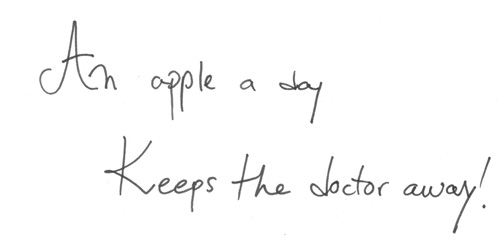 An apple a day
Keeps the doctor away!